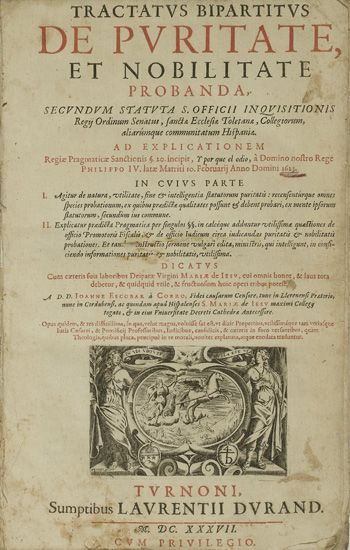 TRACTATVS BIPARTITVS
DE PVRITATE,
ET NOBILITATE
PROBANDA,
SECVNDVM STATVTA S. OFFICII INQVISITIONIS
Regij Ordinum Senatus, sanctæ Ecclesiæ Toletanæ, Collegiorum,
aliarúmque communitatum Hispaniæ.
AD EXPLICATIONEM
Regiæ Pragmaticæ Sanctionis §. 20. incipit, Y por que el odio, à Domino nostro Rege
PHILIPPO IV. latæ Matriti 10. Februarij Anno Domini 1623.
IN CVIVS PARTE
I. Agitur de natura, vtilitate, fine & intelligentia statutorum puritatis: recensentúrque omnes
species probationum, ex quibus prædictæ qualitates possunt & debent probari, ex mente ipsorum
statutorum, secundùm ius commune.
II. Explicatur prædicta Pragmatica per singulos §§. in calcéque adduntur vtilissimæ quæstiones de
officio Promotoris Fiscalis, & de officio Iudicum circa iudicandas puritatis & nobilitatis
probationes. Et tandem instructio sermone vulgari edita, ministris, qui intelligunt, in conficiendo
informationes puritatis & nobilitatis, vtilissima.
DICATVS
Cum cæteris suis laboribus Deiparæ Virgini MARIÆ de IESV, cui omnis honor, & laus tota
debetur, & quidquid vtile, & fructuosum huic operi tribui potest.
A D. D. IOANNE ESCOBAR À CORRO, Fidei causarum Censore, tunc in Llerenensi Prætorio,
nunc in Cordubensi, ac quondam apud Hispalenses S. MARIÆ de IESV maximi Collegij
togato, & in eius Vniuersitate Decreti Cathedræ Antecessore.
TVRNONI,
Sumptibus LAVRENTII DVRAND.
M. DC. XXXVII.
CVM PRIVILEGIO.